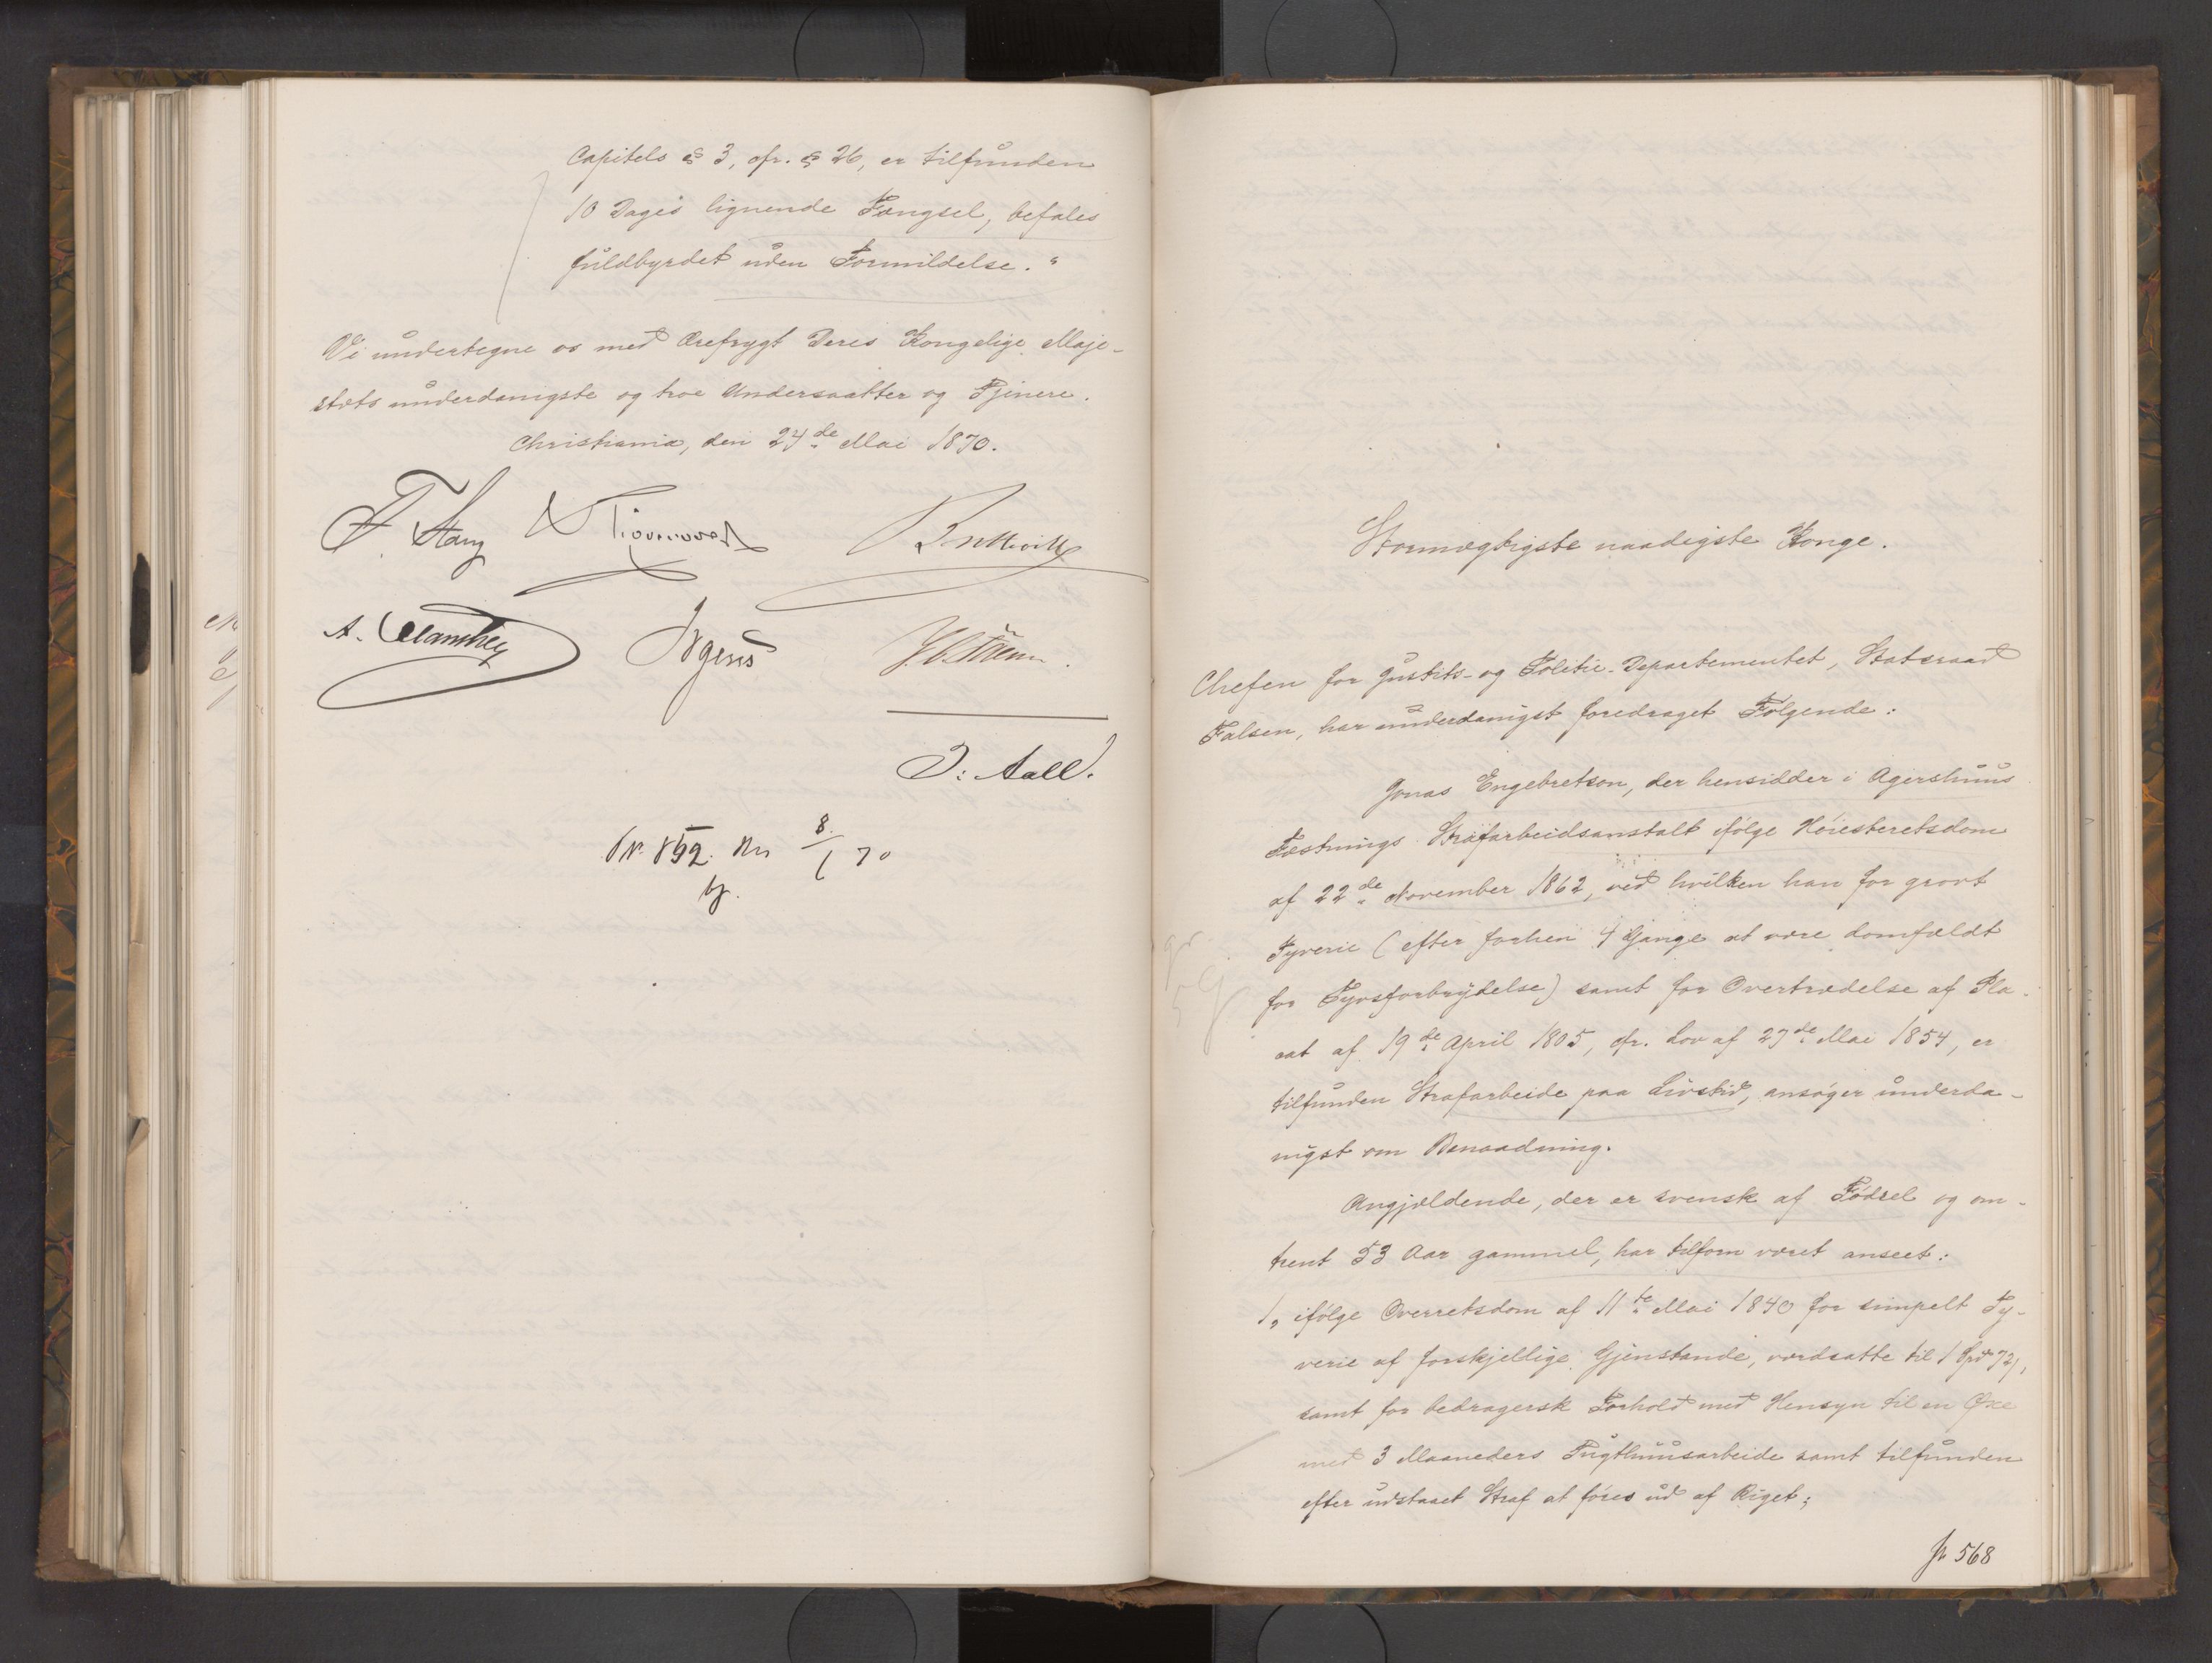 Capitels § 3, cfr. § 26, er tilfunden
10 Dages lignende Fængsel, befales
fuldbyrdet uden Formildelse."
Vi undertegne os med Ærefrygt Deres Kongelige Maje-
stæts underdanigste og troe Undersaatter og Tjenere.
Christiania, den 24de Mai 1870.
F. Stang
Irgens
J: Aall.
8
70
Stormægtigste naadigste Konge.
Chefen for Justits- og Politie-Departementet, Statsraad
Falsen, har underdanigst foredraget Følgende:
Jonas Engebretson, der hensidder i Agershuus
Fæstnings Strafarbeidsanstalt ifølge Høiesteretsdom
af 22de November 1862, ved hvilken han for grovt
Tyverie (efter forhen 4 Gange at være domfældt
for Tyvsforbrydelse) samt for Overtrædelse af Pla-
cat af 19de April 1805, cfr. Lov af 27de Mai 1854, er
tilfunden Strafarbeide paa Livstid, ansøger underda-
nigst om Benaadning.
Angjældende, der er svensk af Fødsel og om-
trent 53 Aar gammel, har tilforn været anseet:
1, ifølge Overretsdom af 11te Mai 1840 for simpelt Ty-
verie af forskjellige Gjenstande, værdsatte til 1 Spd 72,
samt for bedragersk Forhold med Hensyn til en Øxe
med 3 Maaneders Tugthuusarbeide samt tilfunden
efter udstaaet Straf at føres ud af Riget;
Jr 568